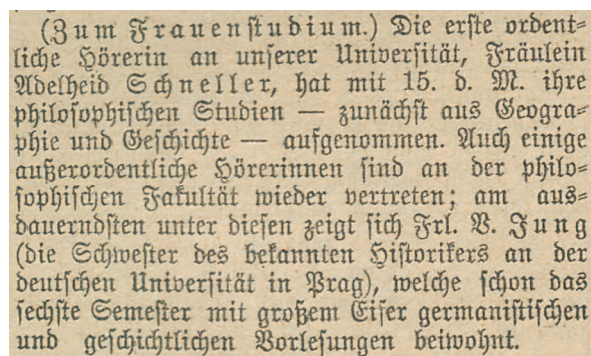 (Zum Frauenstudium.) Die erste ordent-
liche Hörerin an unserer Universität, Fräulein
Adelheid Schneller, hat mit 15. d. M. ihre
philosophischen Studien — zunächst aus Geogra-
phie und Geschichte — aufgenommen. Auch einige
außerordentliche Hörerinnen sind an der philo-
sophischen Fakultät wieder vertreten; am aus-
dauerndsten unter diesen zeigt sich Frl. V. Jung
(die Schwester des bekannten Historikers an der
deutschen Universität in Prag), welche schon das
sechste Semester mit großem Eifer germanistischen
und geschichtlichen Vorlesungen beiwohnt.